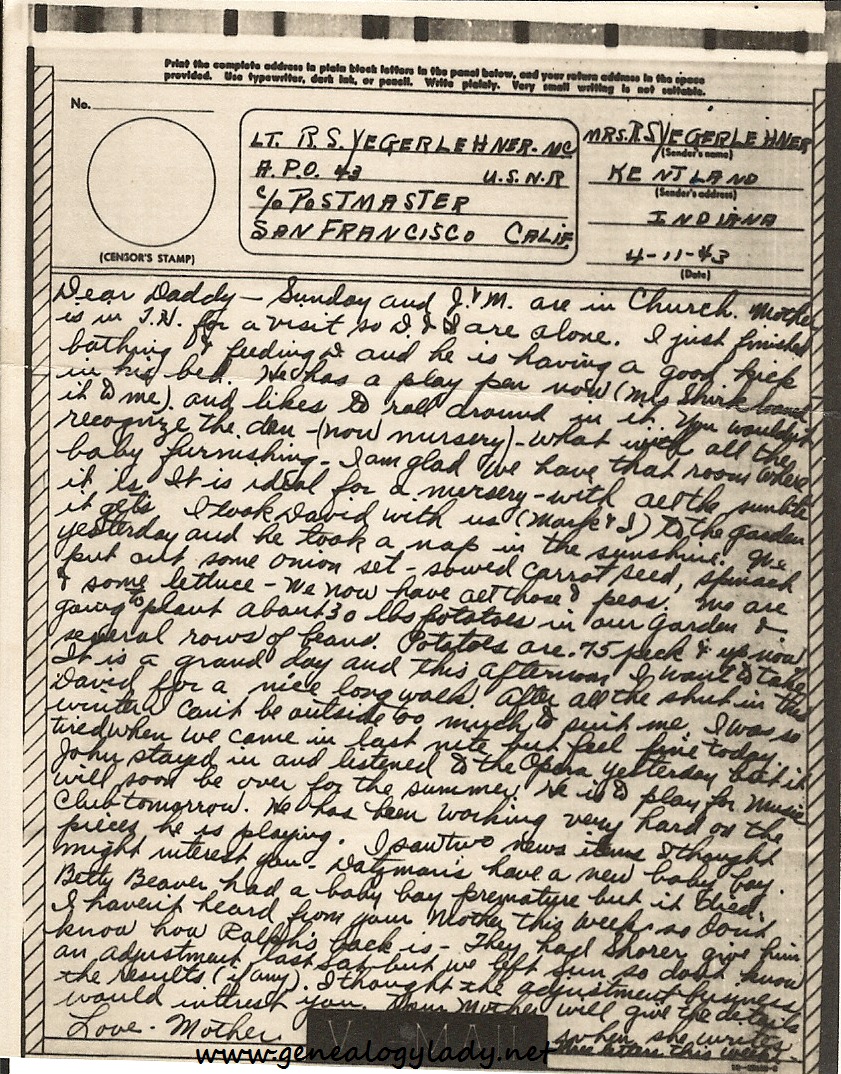 Print the complete address in plain block letters in the panel below, and your return address in the space
provided. Use typewriter, dark ink, or pencil. Write plainly. Very small writing is not suitable.
No.
(CENSOR'S STAMP)
LT. R.S. YEGERLEHNER. MC
A.P.O. 43 U.S.N.R
c/o POSTMASTER
SAN FRANCISCO CALIF
MRS. R.S YEGERLEHNER
(Sender's name)
KENTLAND
(Sender's address)
INDIANA
4-11-43
(Date)
Dear Daddy - Sunday and J. & M. are in Church. Mother
is in T.H. for a visit so D. & I are alone. I just finished
bathing & feeding D. and he is having a good kick
in his bed. He has a play pen now (Mrs Shirk loaned
it to me) and likes to roll around in it. You wouldn't
recognize the den - (now nursery) - what with all the
baby furnishing - I am glad we have that room where
it is. It is ideal for a nursery - with all the sunlite
it gets. I took David with us (Mark & I) to the garden
yesterday and he took a nap in the sunshine. We
put out some onion set - sowed carrot seed, spinach
& some lettuce - We now have all those & peas. We are
going to plant about 30 lbs potatoes in our garden &
several rows of beans. Potatoes are .75 peck & up now
It is a grand day and this afternoon I want to take
David for a nice long walk. After all the shut in this
winter I can't be outside too much to suit me. I was so
tired when we came in last nite but feel fine today.
John stayed in and listened to the Opera yesterday but it
will soon be over for the summer. He is to play for Music
Club tomorrow. He has been working very hard on the
pieces he is playing. I saw two news items I thought
might interest you - Datzman's have a new baby boy.
Betty Beaver had a baby boy premature but it died.
I haven't heard from your Mother this week so don't
know how Ralph's back is - They had Shorer give him
an adjustment last Sat but we left Sun so don't know
the results (if any). I thought the adjustment business
would interest you. Your Mother will give the details
Love - Mother. when she writes
letters this week.
V - MAIL
www.genealogylady.net